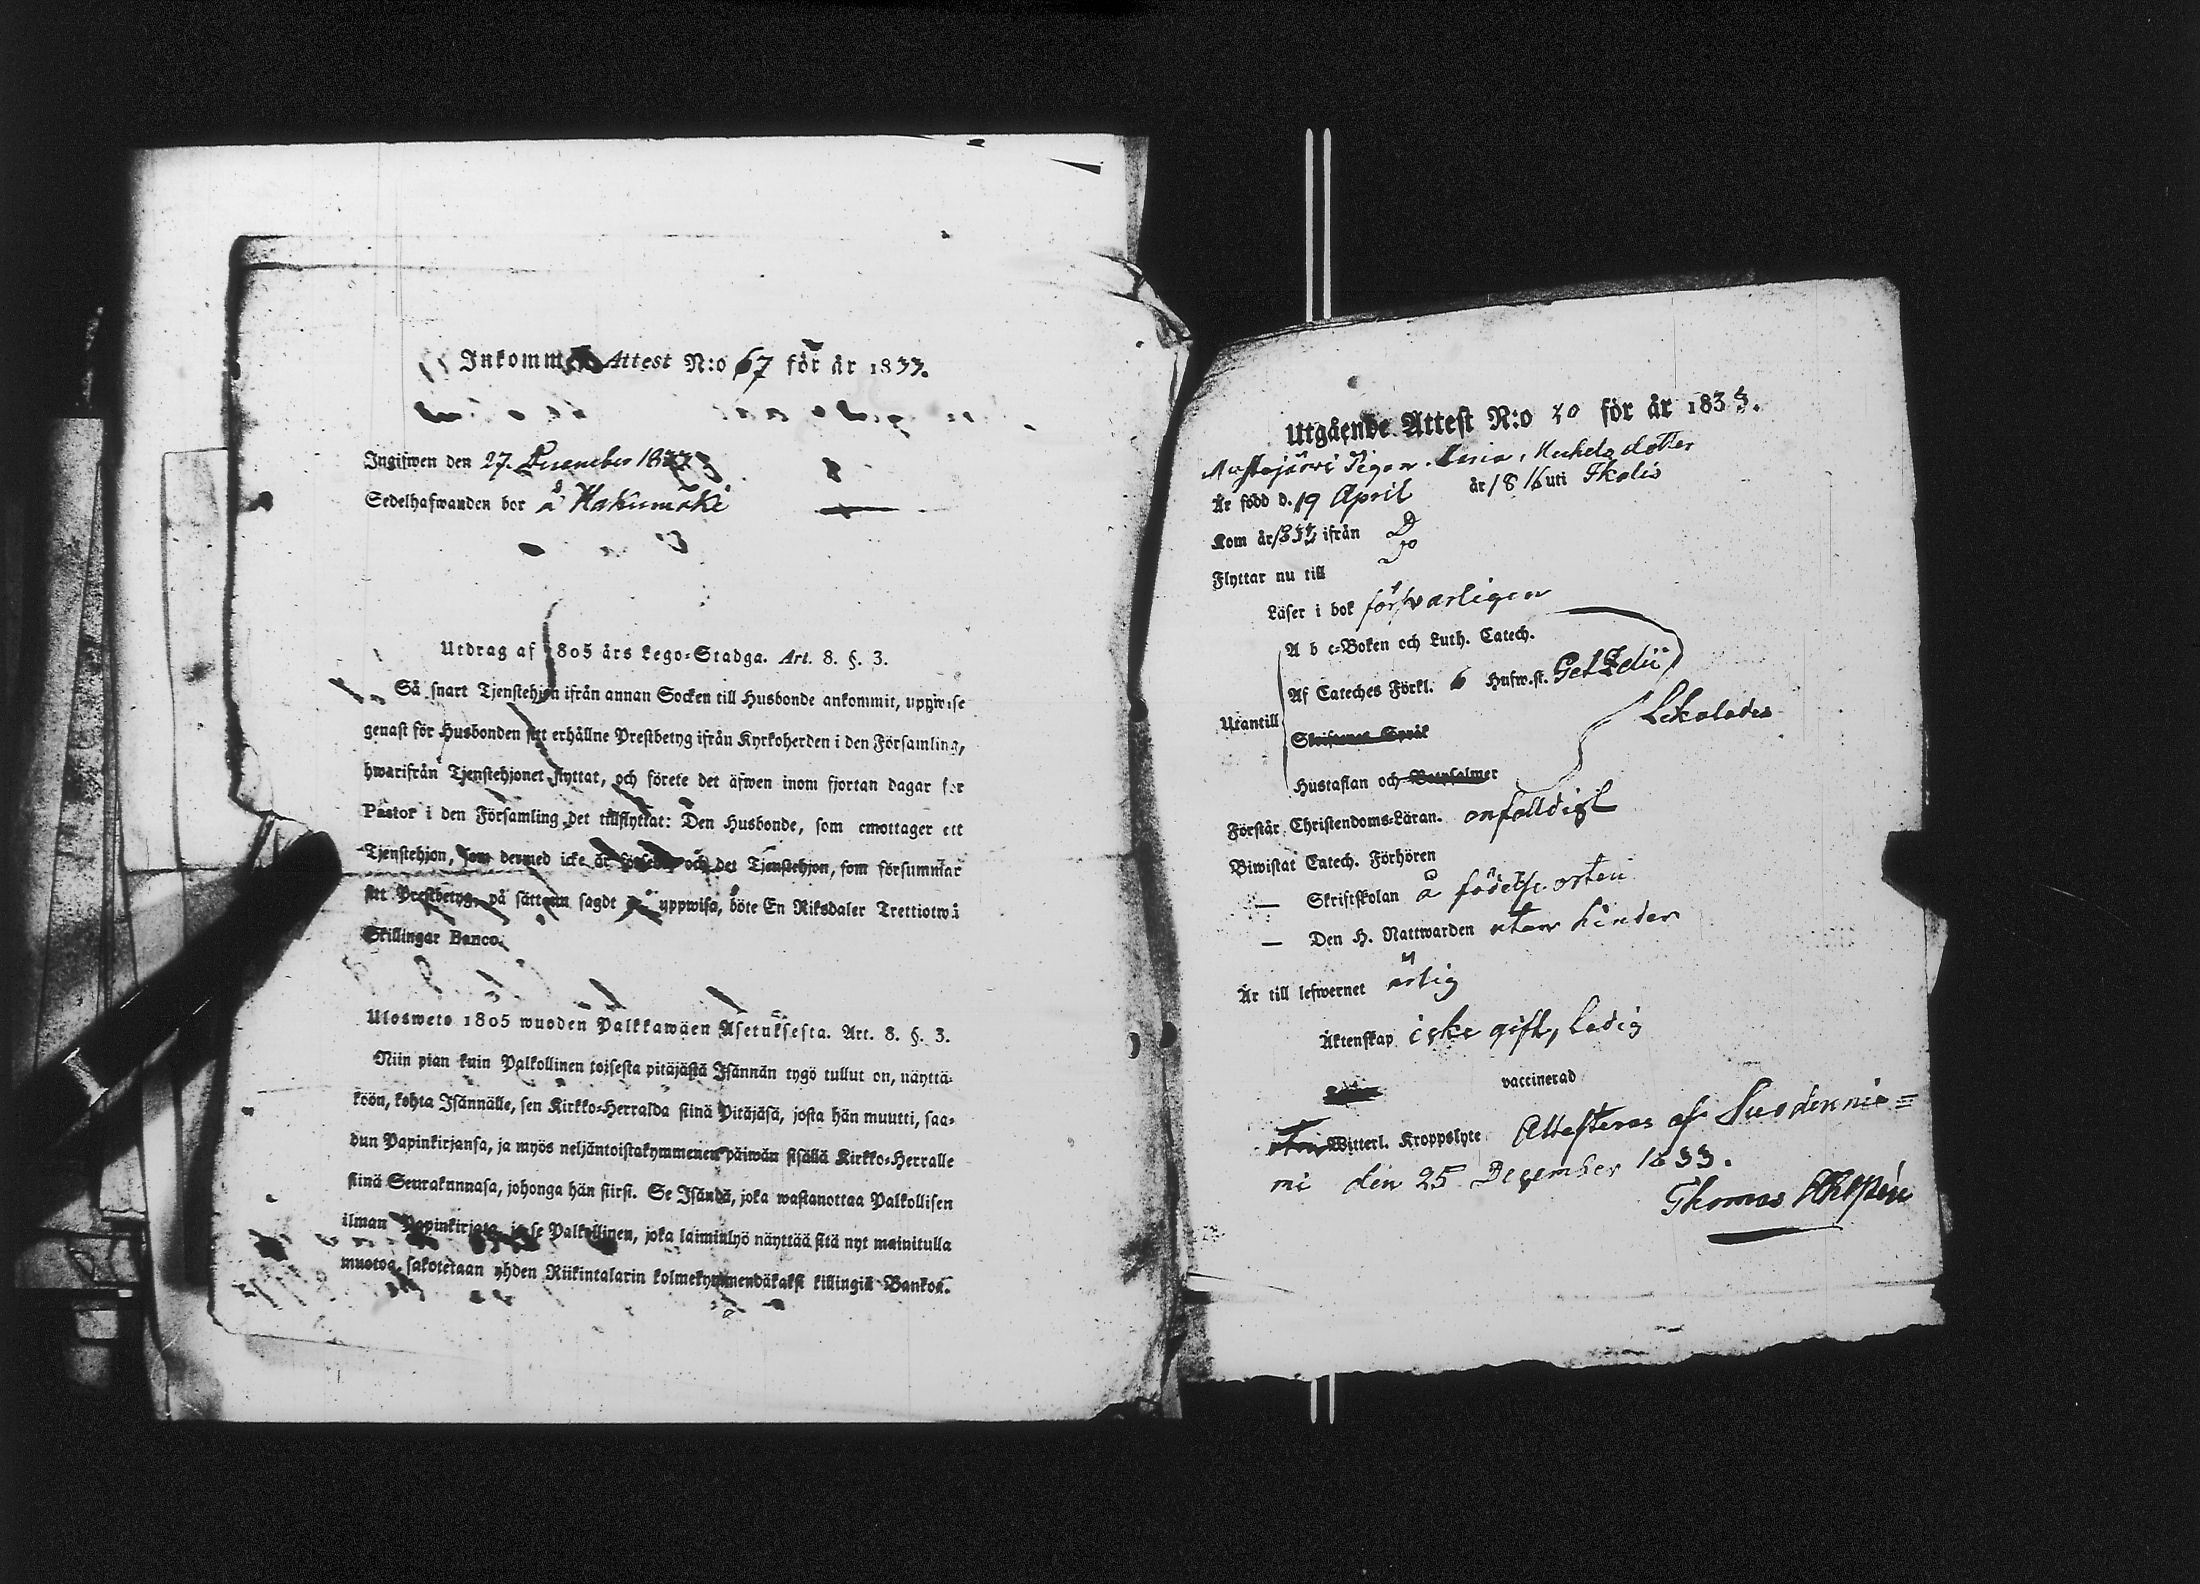 Inkomm Attest N:o 67 för år 1833.
Ingifwen den 27. December 1833
Sedelhafwanden bor å Hakumäki
Utdrag af 1805 års Lego-Stadga. Art. 8. §. 3.
Så snart Tjenstehjon ifrån annan Socken till Husbonde ankommit, uppwise
genast för Husbonden sitt erhållne Prestbetyg ifrån Kyrkoherden i den Församling,
hwarifrån Tjenstehjonet flyttat, och förete det äfwen inom fjortan dagar för
Pastor i den Församling det tillflyttat: Den Husbonde, som emottager ett
Tjenstehjon, som dermed icke är och det Tjenstehjon, som försummar
sitt Prestbetyg, på sätt nu sagdt uppwisa, böte En Riksdaler Trettiotwå
Skillingar Banco.
Ulosweto 1805 wuoden Palkkawäen Asetuksesta. Art. 8. §. 3.
Niin pian kuin Palkollinen toisesta pitäjästä Isännän tygö tullut on, näyttä-
köön, kohta Isännälle, sen Kirkko-Herralda siinä Pitäjäsä, josta hän muutti, saa-
dun Papinkirjansa, ja myös neljäntoistakymmenen päiwän sisällä Kirkko-Herralle
siinä Seurakunnasa, johonga hän siirsi. Se Isändä, joka wastanottaa Palkollisen
ilman Papinkirjata, ja se Palkollinen, joka laiminlyö näyttää sitä nyt mainitulla
muotoa, sakotetaan yhden Riikintalarin kolmekymmendäkaksi killingiä Bankoa.
Utgående Attest N:o 20 för år 1833.
Pigan Michelsdotter
Är född d. 19 April år 1816 uti Ikalis
Kom år 1833 ifrån Do
Flyttar nu till
Läser i bok förswarligen
A b c-Boken och Luth. Catech.
Af Cateches Förkl. 6 Hufw.st. Getzelii
Utantill
Skriftenes Språk
Hustaflan och Botpsalmer
Förstår Christendoms-Läran. enfaldigt
Biwistat Catech. Förhören
— Skriftskolan å födelse orten
— Den H. Nattwarden utan hinder
Är till lefwernet ärlig
Äktenskap icke gift, ledig
vaccinerad
utan Witterl. Kroppslyte Attesteras af Suodennie=
mi den 25 December 1833.
Thomas